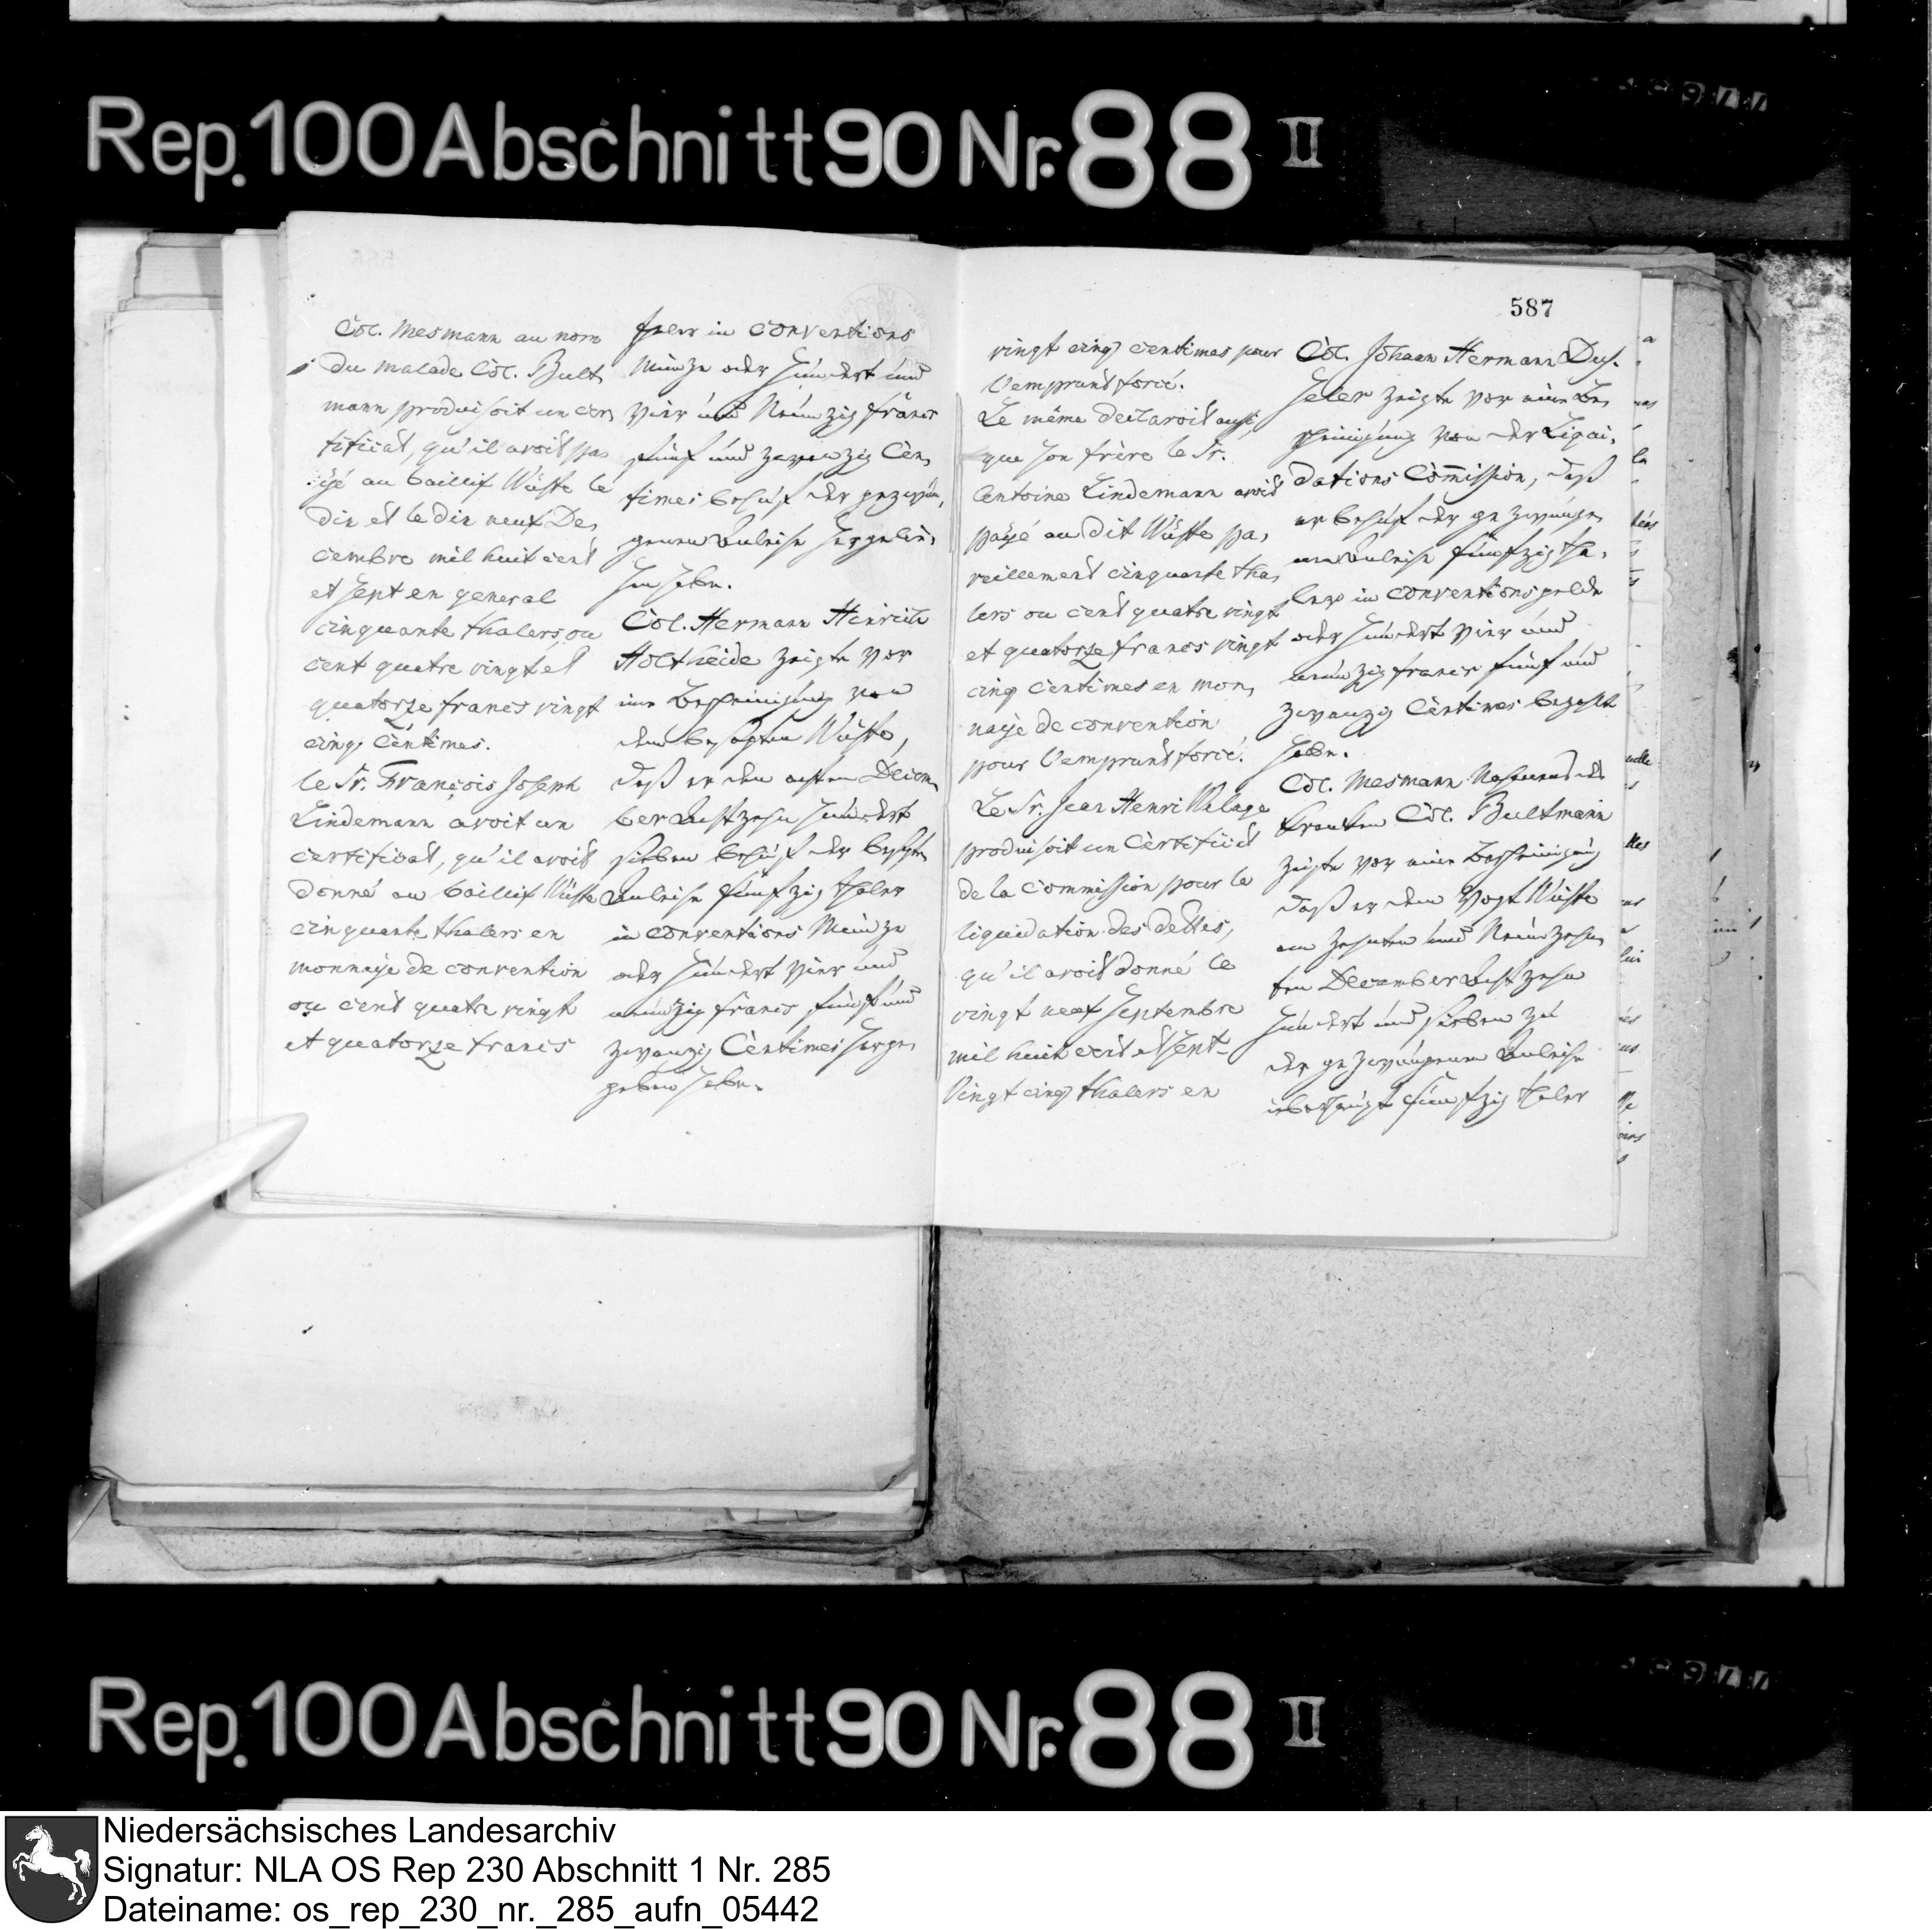 Rep. 100 Abschnitt 90 Nr. 88 II
Col. Mesmann au nom
du malade Col. Bult,
mann produisoit un cer,
tificat, qu'il avoit pa
ÿé au baillif Wüste le
dix et le dix neuf De,
cembre mil huit cent
et sept en general
cinquante thalers, ou
cent quatre vingt et
quatorze francs vingt
cinq Centimes.
le Sr. François Joseph
Lindemann avoit un
certificat, qu'il avoit
donné au baillif Wüste
cinquante thalers en
monnaÿe de convention
ou cent quatre vingt
et quatorze francs
thaler in Conventions
Münze oder Hundert und
Vier und Neunzig francs
fünf und zwanzig Cen,
times behuf der gezwun,
genen Anleihe hergelie,
hen habe.
Col. Hermann Henrich
Holtheide zeigte vor
eine Bescheinigung von
dem besagten Wüste,
daß er den achten Decem,
ber Achtzehn hundert
sieben behuf der besagten
Anleihe fünfzig thaler
in Conventions Münze
oder Hundert Vier und
neunzig francs fünf und
zwanzig Centimes herge,
geben habe.
587
vingt cinq centimes pour
l'emprunt forcé.
Le même declaroit aussi,
que son frère le Sr.
Antoine Lindemann avoit
paÿé au dit Wüste pa,
reillement cinquante tha,
lers ou cent quatre vingt
et quatorze francs vingt
cinq centimes en mon,
naÿe de convention
pour l'emprunt forcé.
Le Sr. Jean Henri
produisoit un Certificat
de la Commission pour le
liquidation des dettes,
qu'il avoit donné le
vingt neuf Septembre
mil huit cent et Sept
Vingt cinq thalers en
Col. Johann Hermann Dus.
heler zeigte vor eine Be,
scheinigung von der Liqui,
dations Commission, daß
er behuf der gezwunge,
nen Anleihe fünfzig tha,
ler in Conventionsgelde
oder Hundert Vier und
neunzig francs fünf und
zwanzig Centimes bezahlt
habe.
Col. Mesmann Nahmens des
kranken Col. Bultmann
zeigte vor eine Bescheinigung
daß er dem Vogt Wüste
am zehnten und Neunzehn,
ten December Achtzehn
Hundert und sieben zu
der gezwungenen Anleihe
überhaupt fünfzig thaler
Rep. 100 Abschnitt 90 Nr. 88 II
Niedersächsisches Landesarchiv
Signatur: NLA OS Rep 230 Abschnitt 1 Nr. 285
Dateiname: os_rep_230_nr._285_aufn_05442